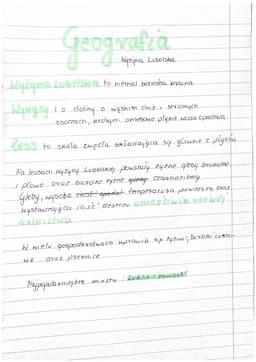 Geografia
Wyżyna Lubelska
Wyżyna Lubelska to niemal bezleśna kraina
Wąwozy to doliny o wąskim dnie i stromych
zboczach, którymi okresowo płynie woda opadowa
less to skała zwięzła składająca się głównie z pyłów
Na lessach Wyżyny Lubelskiej powstały żyzne gleby brunatne
i płowe oraz bardzo żyzne gleby czarnoziemy
Gleby, wysoka temperatura powietrza oraz
wystarczająca ilość deszczu umożliwia rozwój
rolnictwa
W wielu gospodarstwach uprawia się tytoń, buraki cukro-
we oraz pszenice
Najpopularniejsze miasta: Lublin i Zamość